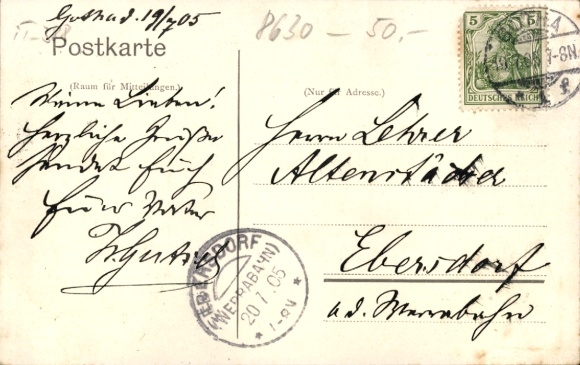 Gotha d. 19/7 05
8630 – 50,–
Postkarte
(Raum für Mitteilungen.)
(Nur für Adresse.)
5 5
DEUTSCHES REICH
Meine Lieben!
Herzliche Grüße
sendet Euch
Euer Vater
Herrn Lehrer
Altenstädter
Ebersdorf
a. d. Werrabahn
EBERSDORF
(WERRABAHN)
20.7.05
* 1-8V *